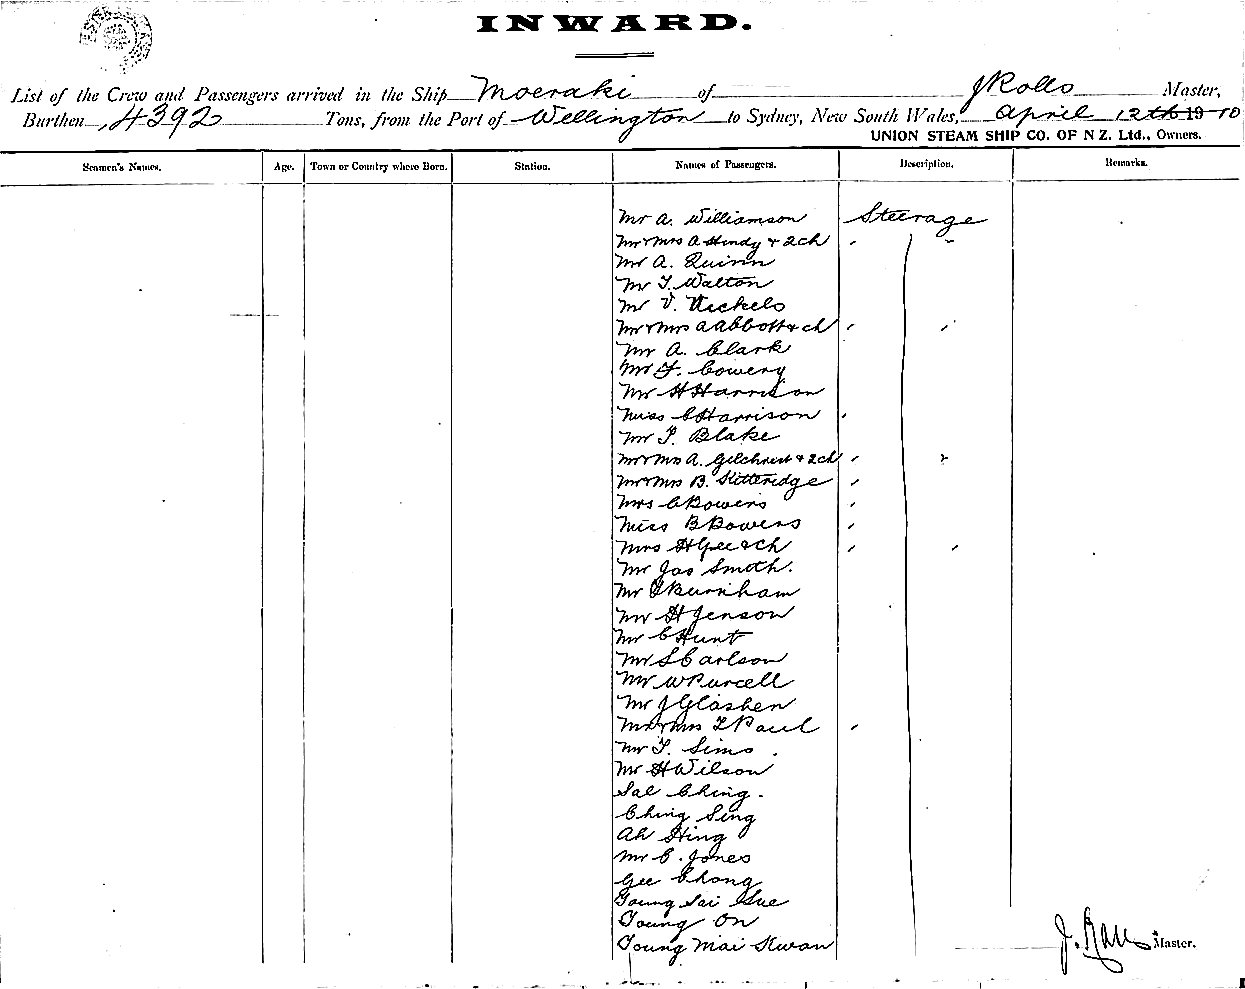 INWARD.
List of the Crew and Passengers arrived in the Ship Moeraki of J Rollo Master,
Burthen 4392 Tons, from the Port of Wellington to Sydney, New South Wales, April 12th 1910
UNION STEAM SHIP CO. OF N Z. Ltd., Owners.
Seamen's Names. Age. Town or Country where Born. Station. Names of Passengers. Description. Remarks.
Mr A. Williamson Steerage
Mr & Mrs A Hendy & 2 ch
Mr A. Quinn
Mr T. Walton
Mr V. Nickels
Mr & Mrs A Abbott & ch
Mr A. Clark
Mr F. Cowery
Mr H Harrison
Miss C Harrison
Mr T. Blake
Mr & Mrs A. Gilchrist & 2 ch
Mr & Mrs B. Kitteridge
Mrs C Bowers
Miss B Bowers
Mrs H Gee & ch
Mr Jas Smoth.
Mr Burnham
Mr H Jenson
Mr C Hunt
Mr S Carlson
Mr W Purcell
Mr J Glashen
Mr & Mrs L Paul
Mr T. Sims.
Mr H Wilson
Sal Ching.
Ching Sing
Ah Hing
Mr C. Jones
Gee Chong
Young Sai Sue
Young On
Young Mai Kwan
J. Rollo Master.